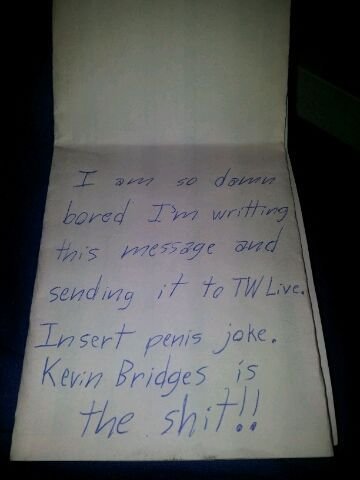 I am so damn
bored I'm writting
this message and
sending it to TW Live.
Insert penis joke.
Kevin Bridges is
the shit!!